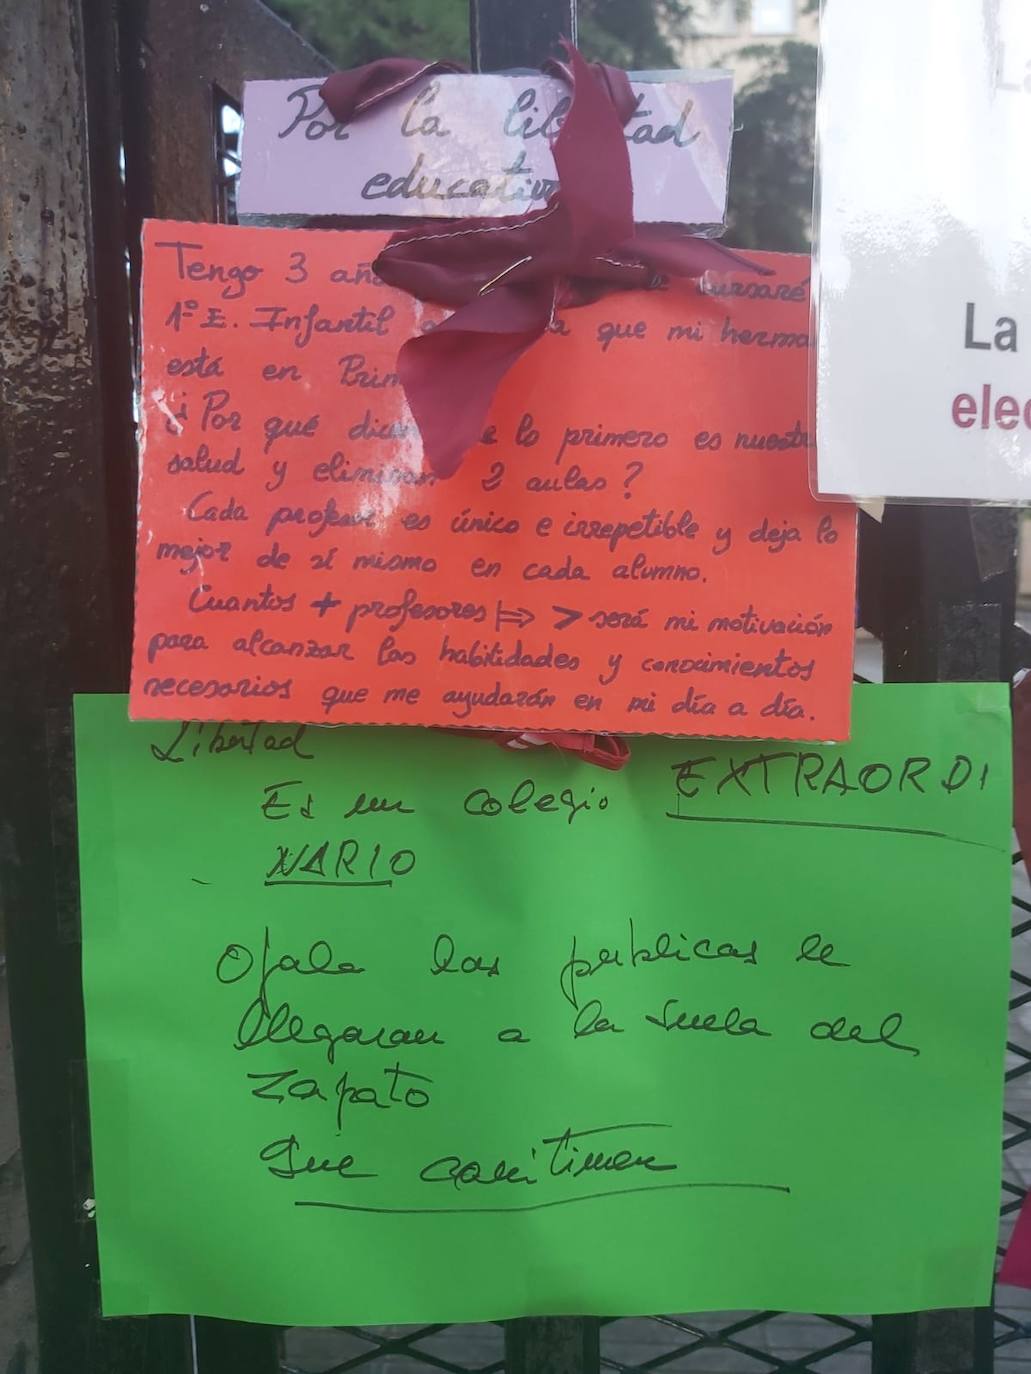 Por la libertad
educativa
Tengo 3 años cursaré
1º E. Infantil que mi herma
está en Prim
¿Por qué dicen que lo primero es nuestra
salud y eliminan 2 aulas?
Cada profesor es único e irrepetible y deja lo
mejor de sí mismo en cada alumno.
Cuantos + profesores |⇒ > será mi motivación
para alcanzar las habilidades y conocimientos
necesarios que me ayudarán en mi día a día.
Libertad
Es un colegio EXTRAORDI
NARIO
Ojala las publicas le
llegaran a la suela del
zapato
Que continuen
La
elec